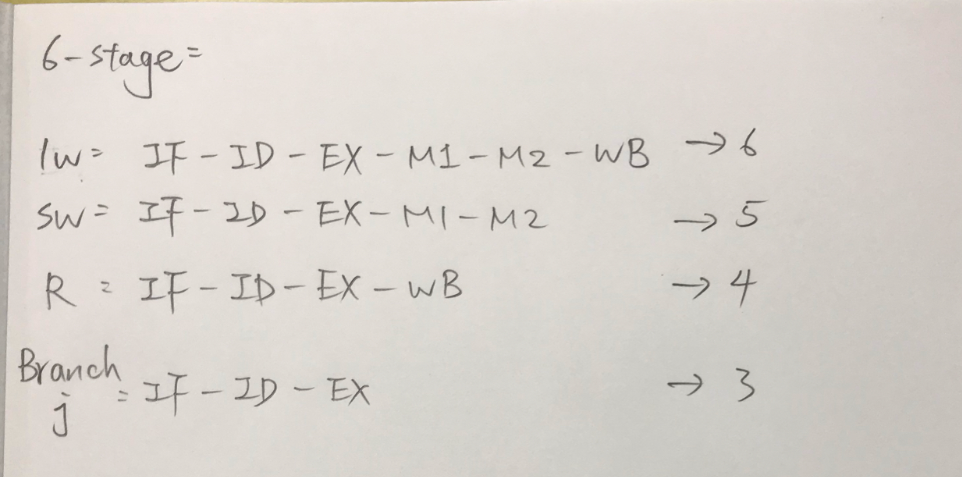 6-stage=
lw= IF-ID-EX-M1-M2-WB →6
SW= IF-ID-EX-M1-M2 →5
R = IF-ID-EX-WB →4
Branch
j = IF-ID-EX →3